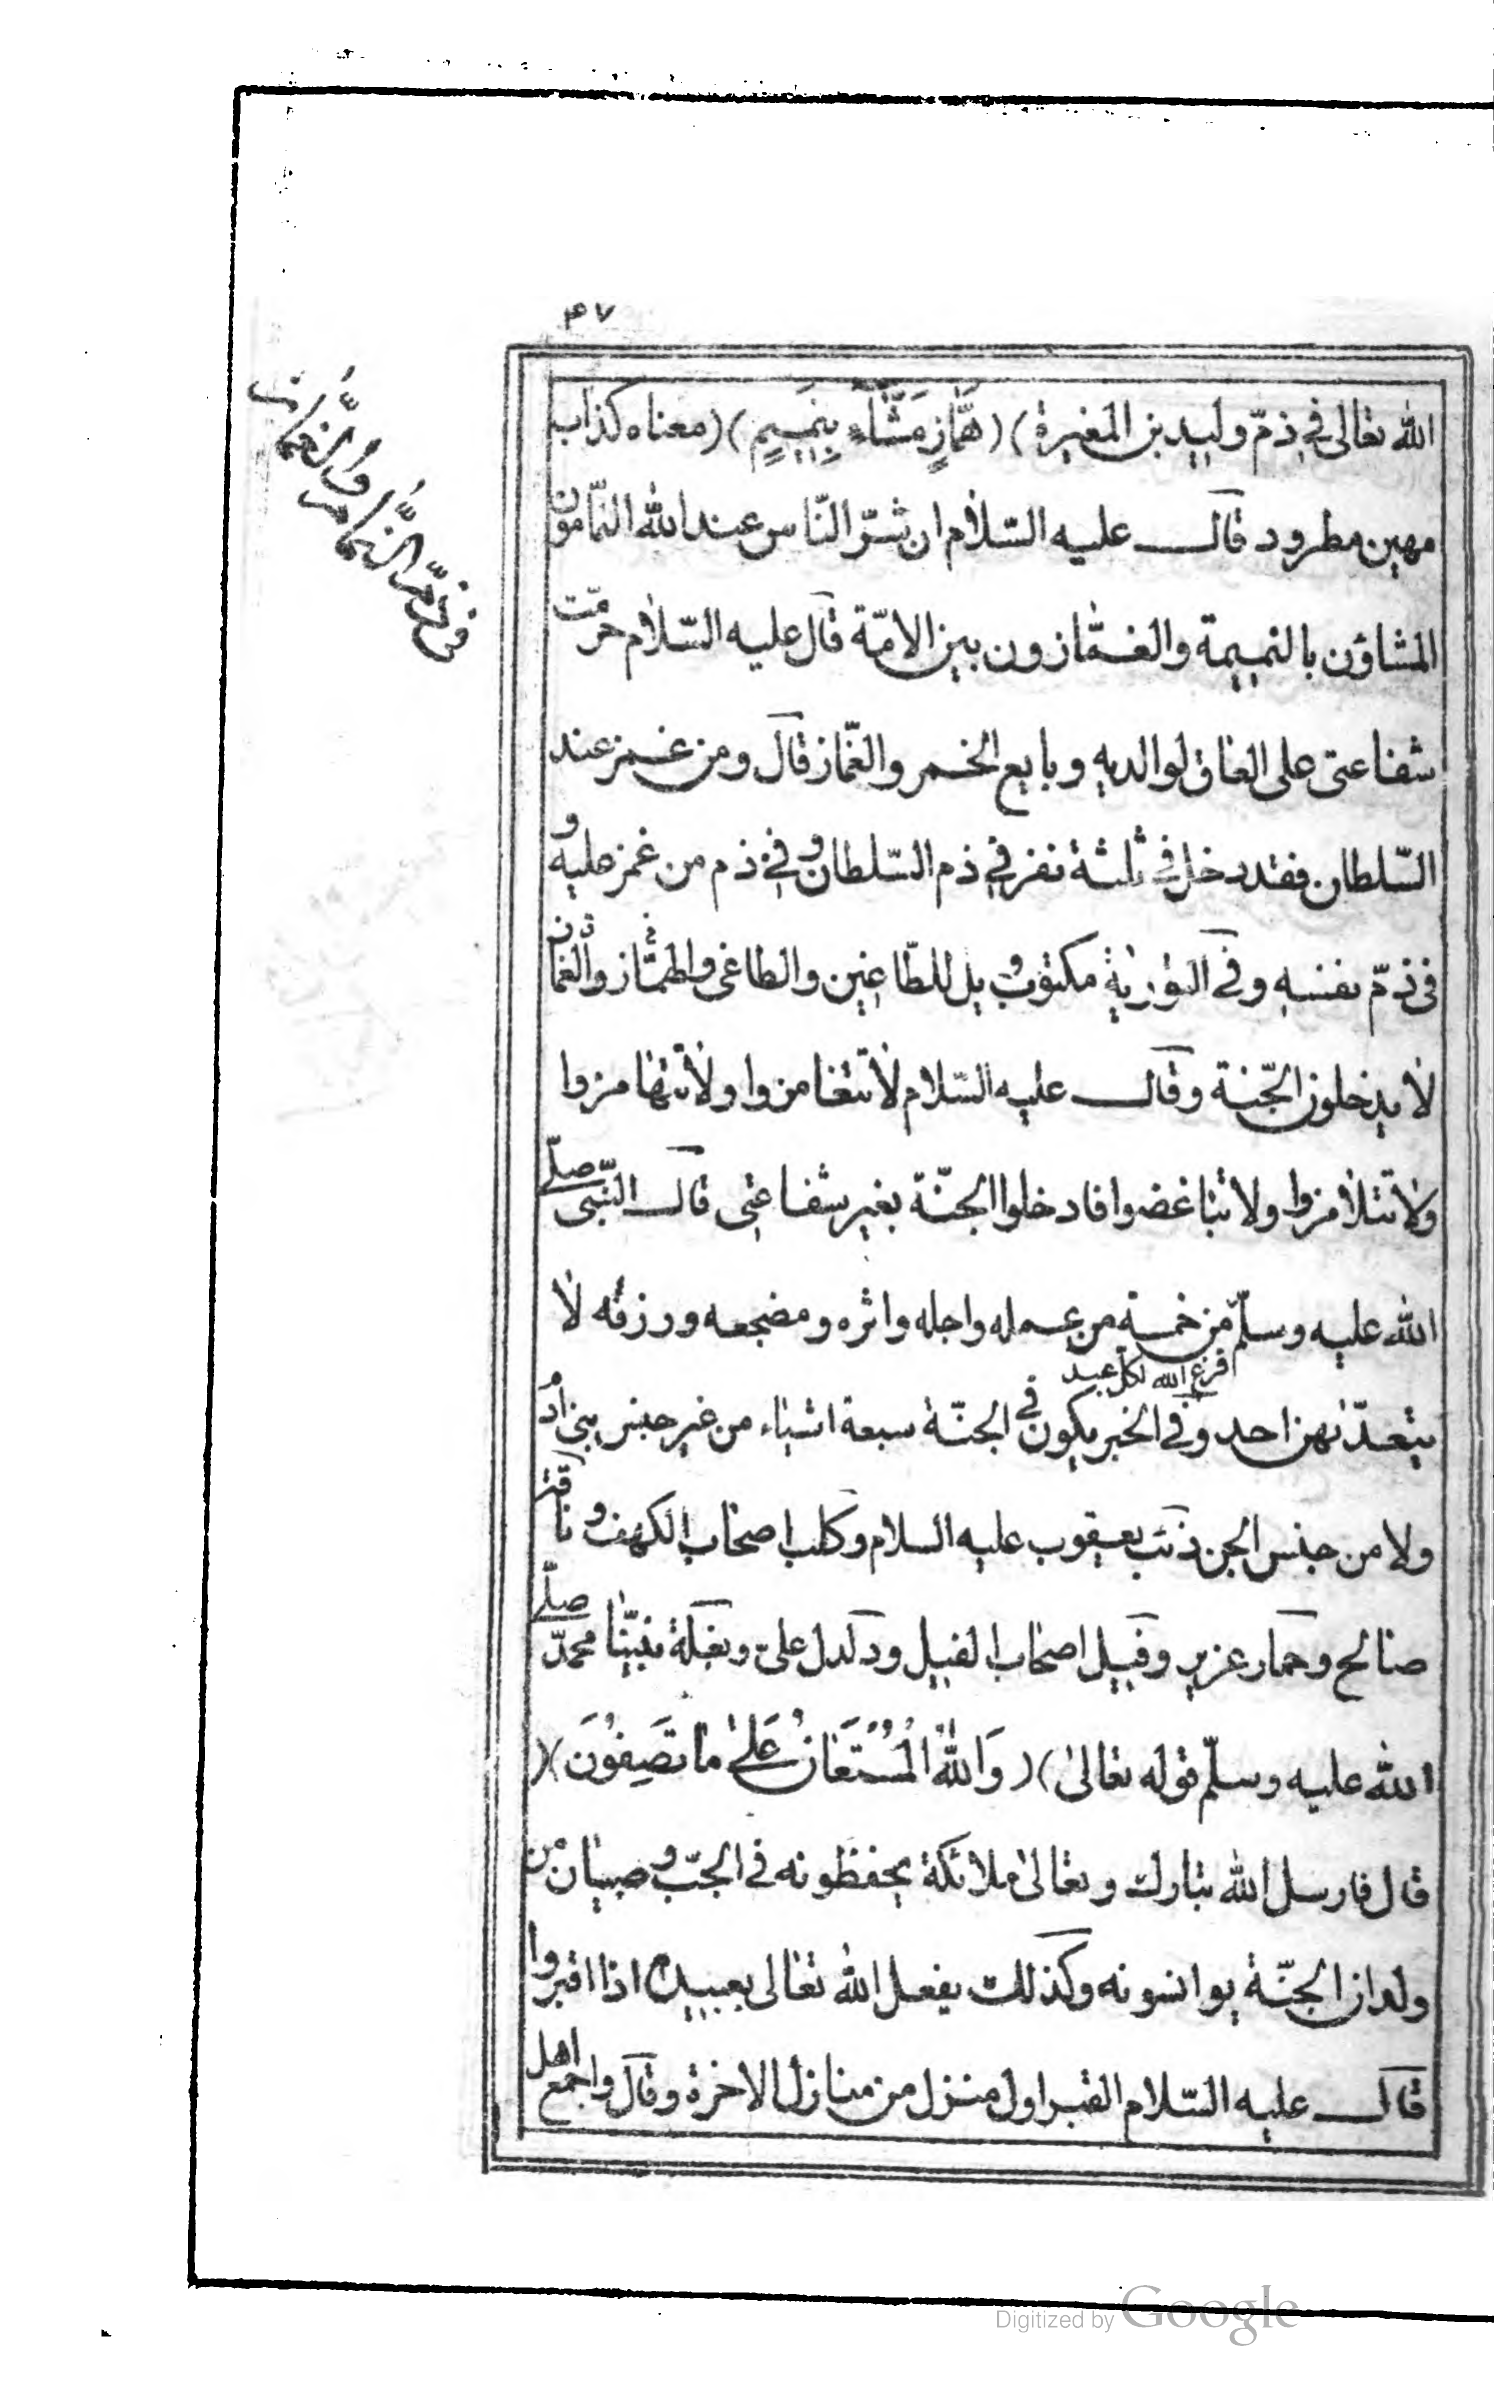 ٣٧
الله تعالى في ذمّ وليد بن المغيرة)(هَمَّازٍ مَشَّآءٍ بِنَمِيمٍ)(معناه كذاب
مهين مطرود قال عليه السّلام ان شرّ النّاس عند الله النمّامون
المشاؤن بالنميمة والغمّازون بين الامّة قال عليه السّلام حرّمت
شفاعتى على العاق لوالديه وبايع الخمر والغمّاز قال ومن غمز عند
السّلطان فقد دخل في ثلثة نفر في ذم السّلطان وفي ذم من غمز عليه و
فى ذمّ نفسه وفى التورية مكتوب ويل للطّاغين والطاغى والغمّازون
لا يدخلون الجّنة وقال عليه السّلام لا تتغامزوا ولا تتهامزوا
ولا تتلامزوا ولا تباغضوا فادخلوا الجنّة بغير شفاعتى قال النّبى صلّى
الله عليه وسلّم من خمسة من عمله واجله واثره ومضجعه ورزقه لا
افرغ الله لكلّ عبد
يتعدّيهن احد وفي الخبر يكون في الجنّة سبعة اشياء من غير جنس بنى ادم
ولا من جنس الجن ذئب يعقوب عليه السلام وكلب اصحاب الكهف و ناقة
صالح وحمار عزير وفيل اصحاب الفيل ودلدل علىّ وبغلة نبيّنا محمّد صلّى
الله عليه وسلّم قوله تعالىٰ)(وَاللهُ الْمُسْتَعَانُ عَلىٰ مَا تَصِفُونَ)(
قال فارسل الله تبارك وتعالىٰ ملائكة يحفظونه في الجبّ وصبيان من
ولدان الجنّة يوانسونه وكذلك يفعل الله تعالى بعبيده اذا اقبروا
قال عليه السّلام القبر اول منزل من منازل الاخرة وقال واجمع اهل
فى ذمّ النمّام والغمّاز
Digitized by Google